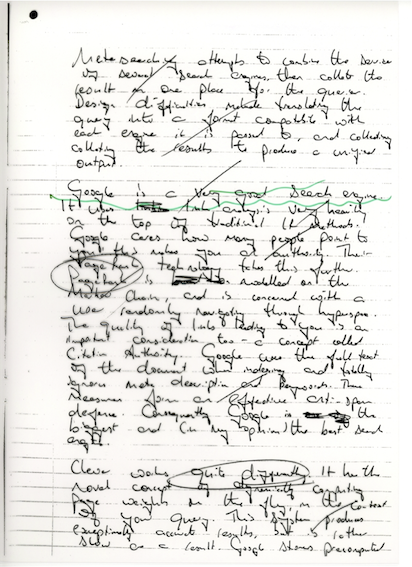 Metasearching attempts to combine the service
of several search engines, then collate the
result in one place for the querier.
Design difficulties include translating the
query into a format compatible with
each engine it is passed to, and collecting
collating the results to produce a unified
output.
Google is a very good search engine
It uses link analysis very heavily
on the top of traditional IR methods.
Google cares how many people point to
you this makes you an authority. Their
PageRank technology takes this further.
PageRank is modelled on the
Markov Chain, and is concerned with a
user randomly navigating through hyperspace.
The quality of links leading to you is an
important consideration too - a concept called
Citation Authority. Google uses the full text
of the document when indexing and totally
ignores meta description and keywords. These
measures form an effective anti-spam
defence. Consequently Google is the
biggest and (in my opinion) the best search
engine.
Clever works quite differently. It has the
novel concept of dynamically computing
page weights on the fly, in the context
of your query. This system produces
exceptionally accurate results, but is rather
slow as a result. Google stores precomputed